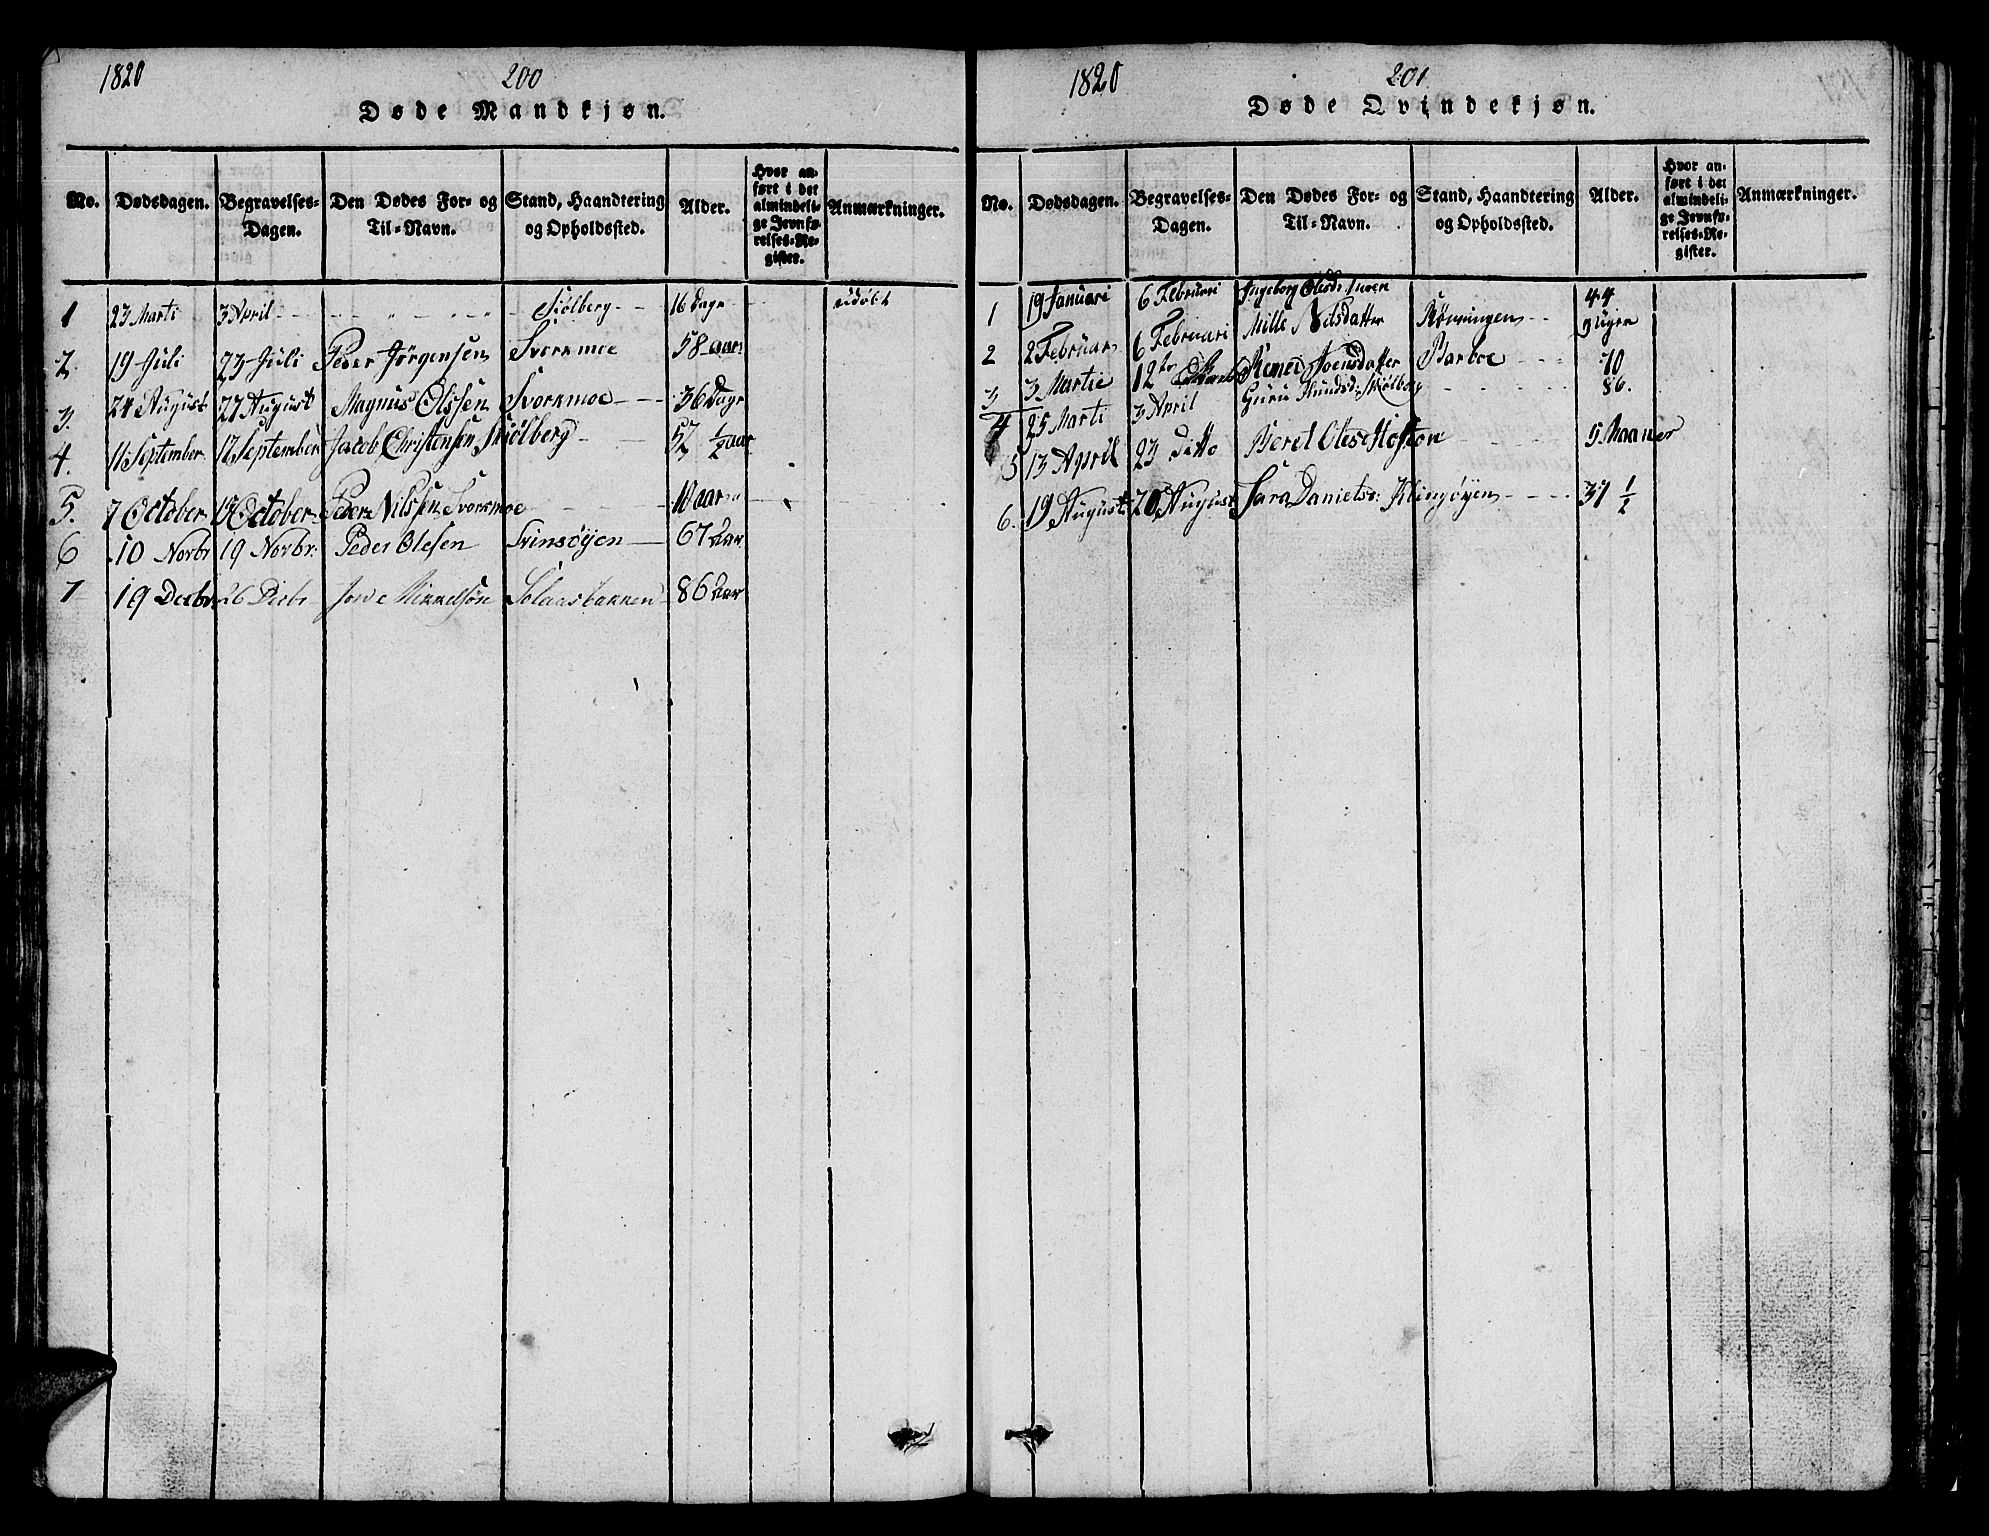 1820 200
Døde Mandkjøn.
No. Dødsdagen. Begravelses-Dagen. Den Dødes For- og Til-Navn. Stand, Haandtering og Opholdssted. Alder. Hvor anført i det almindelige Jevnførelses-Register. Anmærkninger.
1 23 Marti 3 April - - - Skiølberg 16 Dage udøbt
2. 19 Juli 23 Juli Peder Jørgensen Svorkmoe 58 aar
3. 24 August 27 August Magnus Olssen Svorkmoe 36 Dage
4. 11 September 17 September Jacob Christensen Skiølberg 52 1/2 aar
5. 7 October October Peder Nilssen Svorkmoe aar
6 10 Novbr 19 Novbr: Peder Olesen Svinsøyen 67 Aar
7 19 Decbr 26 Decbr Mikkelsøn Solaasbakken 86 Aar
1820 201
Døde Qvindekjøn.
No. Dødsdagen. Begravelses-Dagen. Den Dødes For- og Til-Navn. Stand, Haandtering og Opholdssted. Alder. Hvor anført i det almindelige Jevnførelses-Register. Anmærkninger.
1 19 Januari 6 Februari Ingeborg Olesd: 44
2 2 Februar 6 Februari Mille Nilsdatter Rønningen 9 Uger
3 3 Martie 12te Joensdatter 70
4 25 Marti 3 April Guru Knudsd: Skiølberg 86.
5 13 April 23 ditto Beret Olesd Hofton 5 Maaner
6. 19 August August Sara Danielsd: Klingøyen 37 1/2